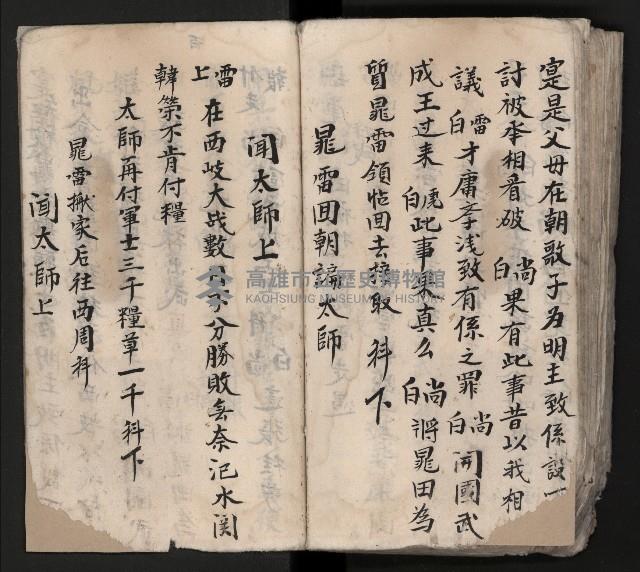 寔是父母在朝歌子為明主致係設一
討被李相看破尚白果有此事昔以我相
議雷白才庸李浅致有係之罪尚白開國武
成王过来虎白此事果真么尚白將晁田為
質晁雷領帖回去接取 科下
晁雷回朝誆太師
聞太師上
雷上在西岐大战數分勝敗無奈汜水関
韓榮不肯付糧
太師再付軍士三千糧草一千科下
晁雷搬家后往西周科
聞太師上
高雄市立歷史博物館
KAOHSIUNG MUSEUM OF HISTORY